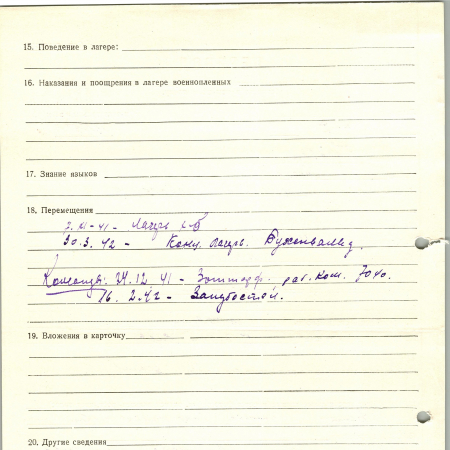 15. Поведение в лагере:
16. Наказания и поощрения в лагере военнопленных
17. Знание языков
18. Перемещения
3. XI - 41 - Лагерь
30. 3. 42 - Конц. Лагерь. Бухенвальд.
Команды: 24. 12 41 - раб. ком.
16. 2. 42 -
19. Вложения в карточку
20. Другие сведения